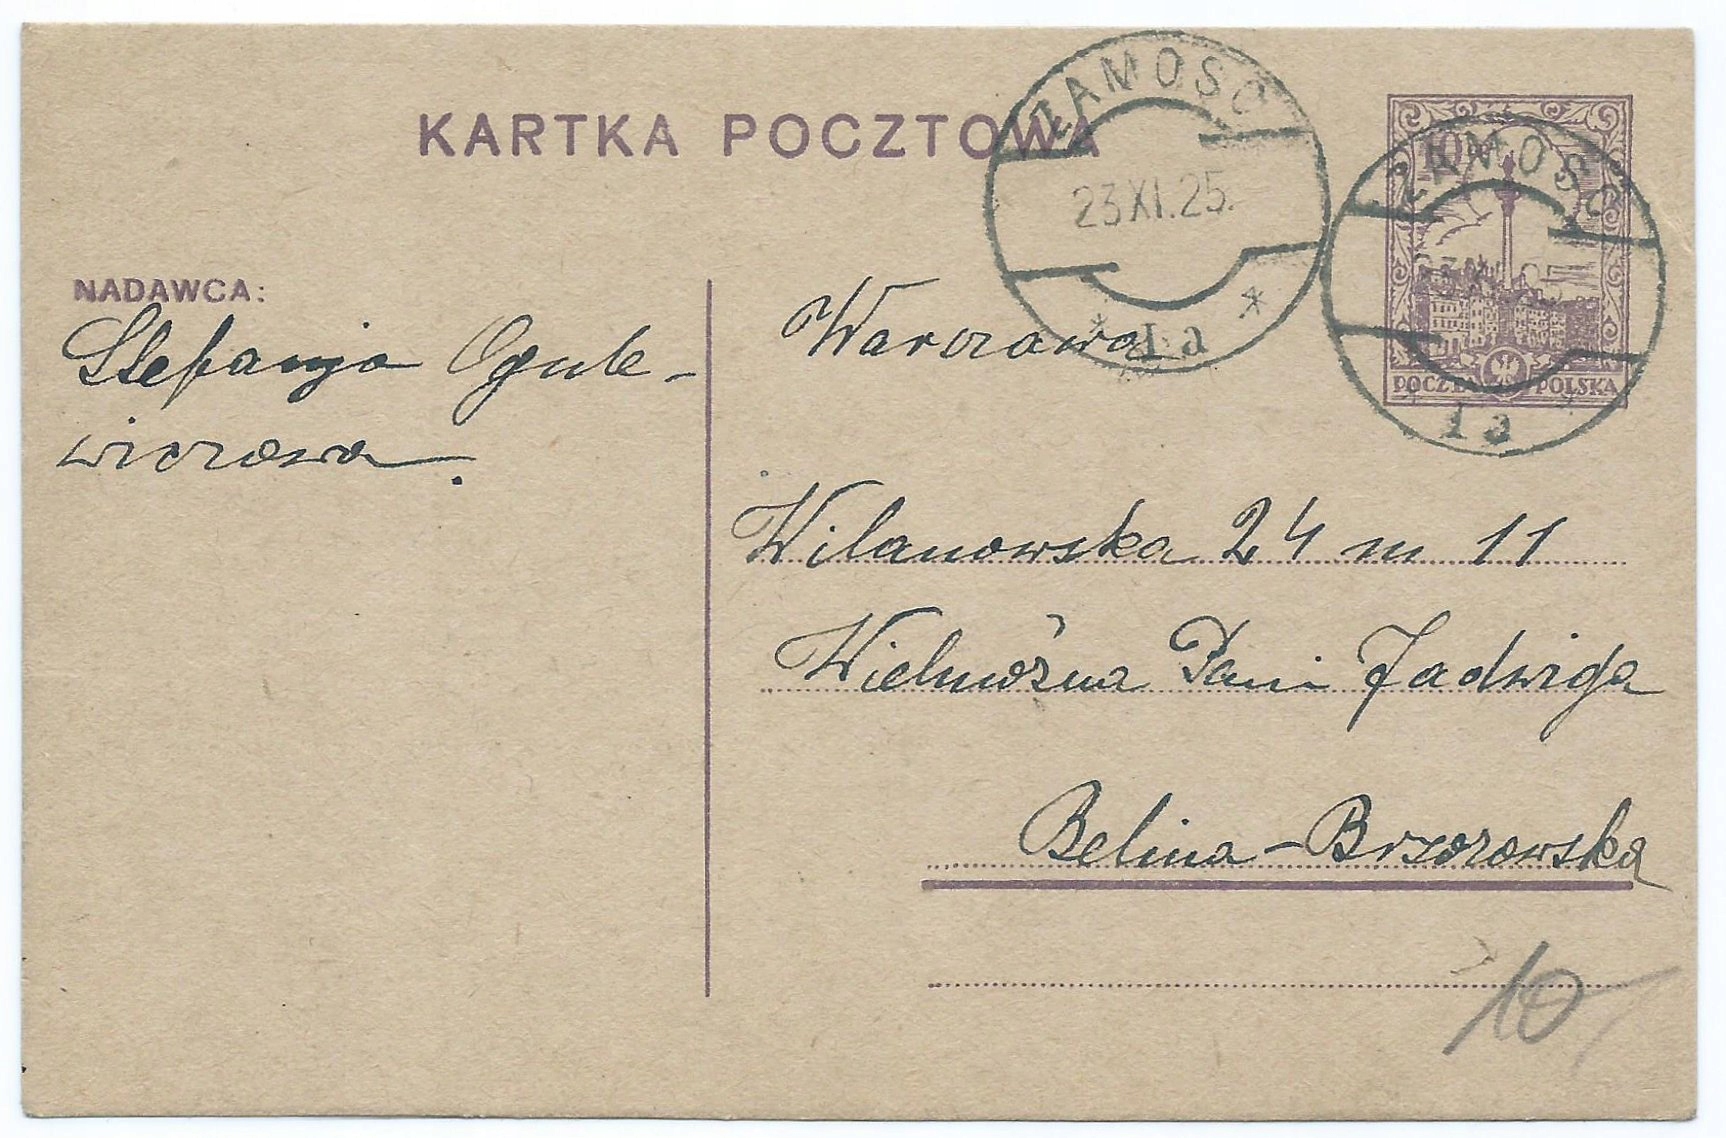 KARTKA POCZTOWA
ZAMOŚĆ
23 XI. 25.
* 1a *
10
ZAMOŚĆ
1a
POCZTA POLSKA
NADAWCA:
Stefanja Ogule-
wiczowa.
Warszawa
Wilanowska 24 m 11
Wielmożna Pani Jadwiga
Belina-Brzozowska
10